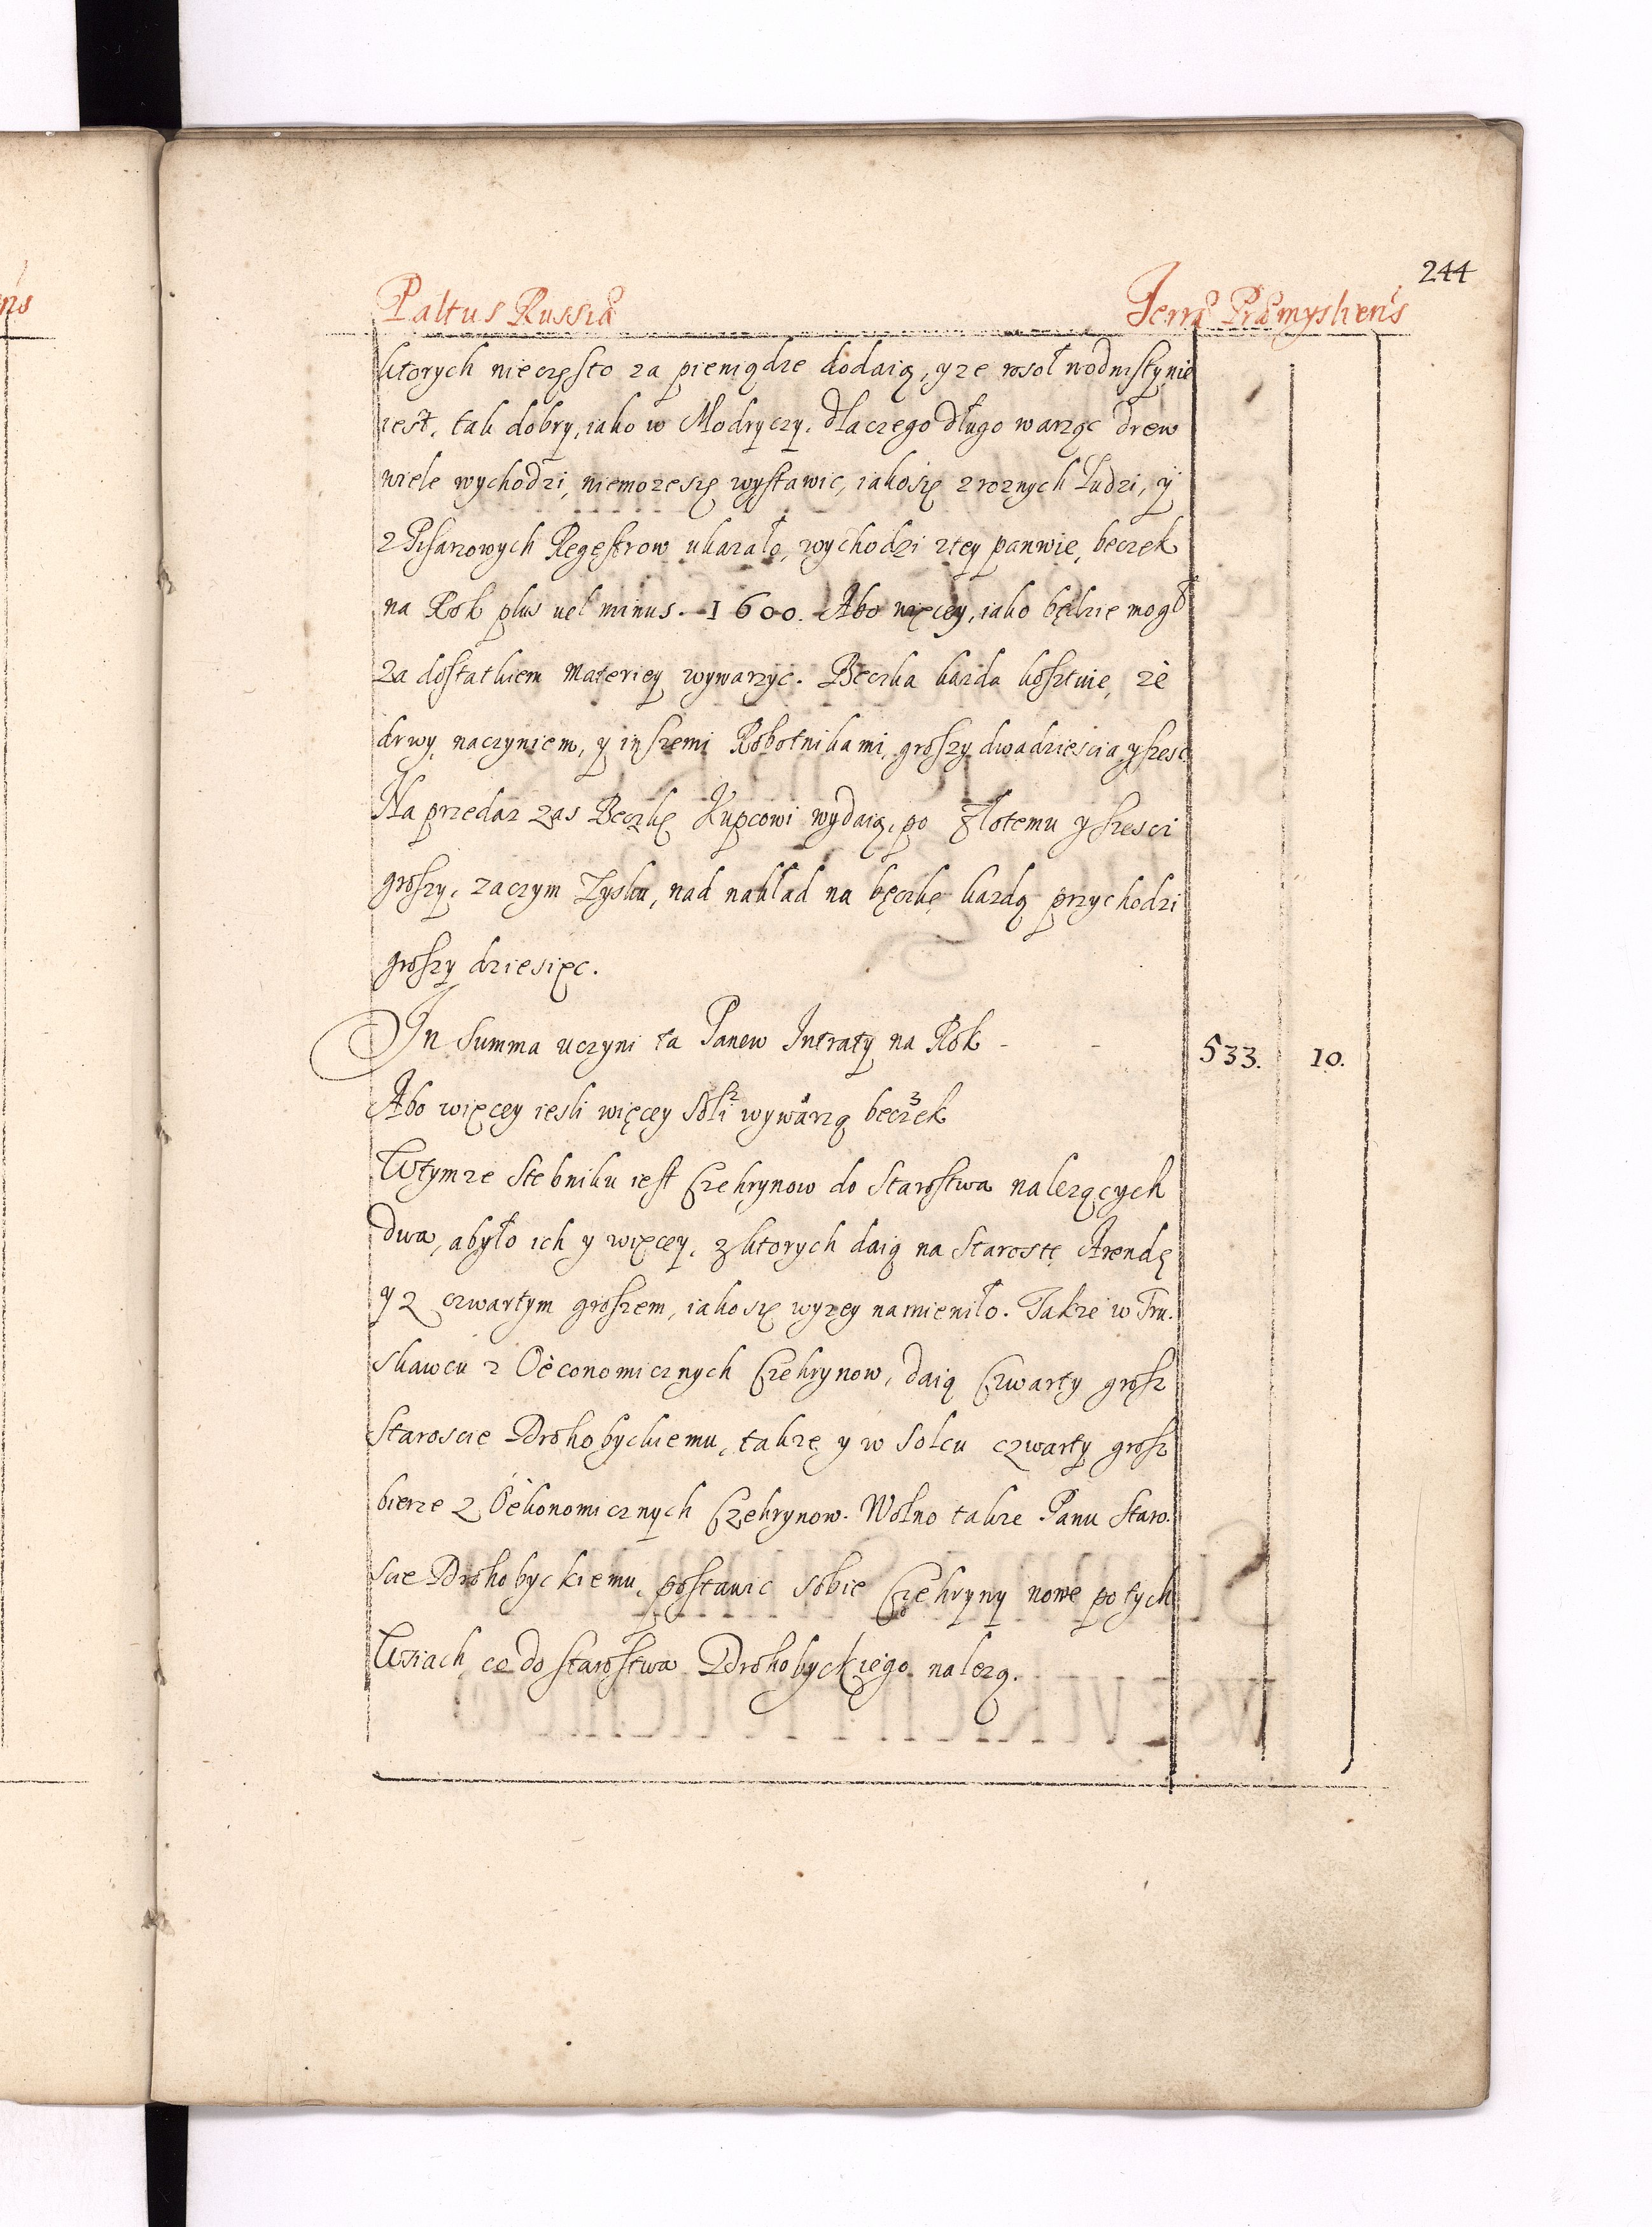 244
Paltus Russiæ Terræ Præmyslien̄s
ktorych nieczęsto za pieniądze dodaią, y ze rosoł wodnisty nie
iest, tak dobry, iako w Modryczy, dlaczego długo warząc drew
wiele wychodzi, niemoze się wystawic, iako się z roznych Ludzi, y
z Pisarzowych Regestrow ukazało, wychodzi z tey panwie, beczek
na Rok plus uel minus. 1600. Abo więcey, iako będzie mogł
za dostatkiem materiey wywarzyc. Beczka kazda kosztuie, ze
drwy, naczyniem, y inszemi Robotnikami, groszy dwadziescia y szesc
Na przedaz zas Beczkę Kupcowi wydaią, po Złotemu y szesci
groszy, zaczym Zysku, nad nakład na bęczkę kazdą przychodzi
groszy dziesięc.
In Summa uczyni ta Panew Intraty na Rok - - 533. 10.
Abo więcey iesli więcey soli wywarzą beczek
W tymze Stebniku iest Czehrynow do Starostwa nalezących
dwa, a było ich y więcey, z ktorych daią na Starostę Arendę
y z czwartym groszem, iako się wyzey namieniło. Takze w Tru.
skawcu z Oeconomicznych Czehrynow, daią Czwarty grosz
Staroscie Drohobyckiemu, takze y w Solcu czwarty grosz
bierze z Oekonomicznych Czehrynow. Wolno takze Panu Staro.
scie Drohobyckiemu, postawic sobie Czehryny nowe po tych
Wsiach co do starostwa Drohobyckiego nalezą.